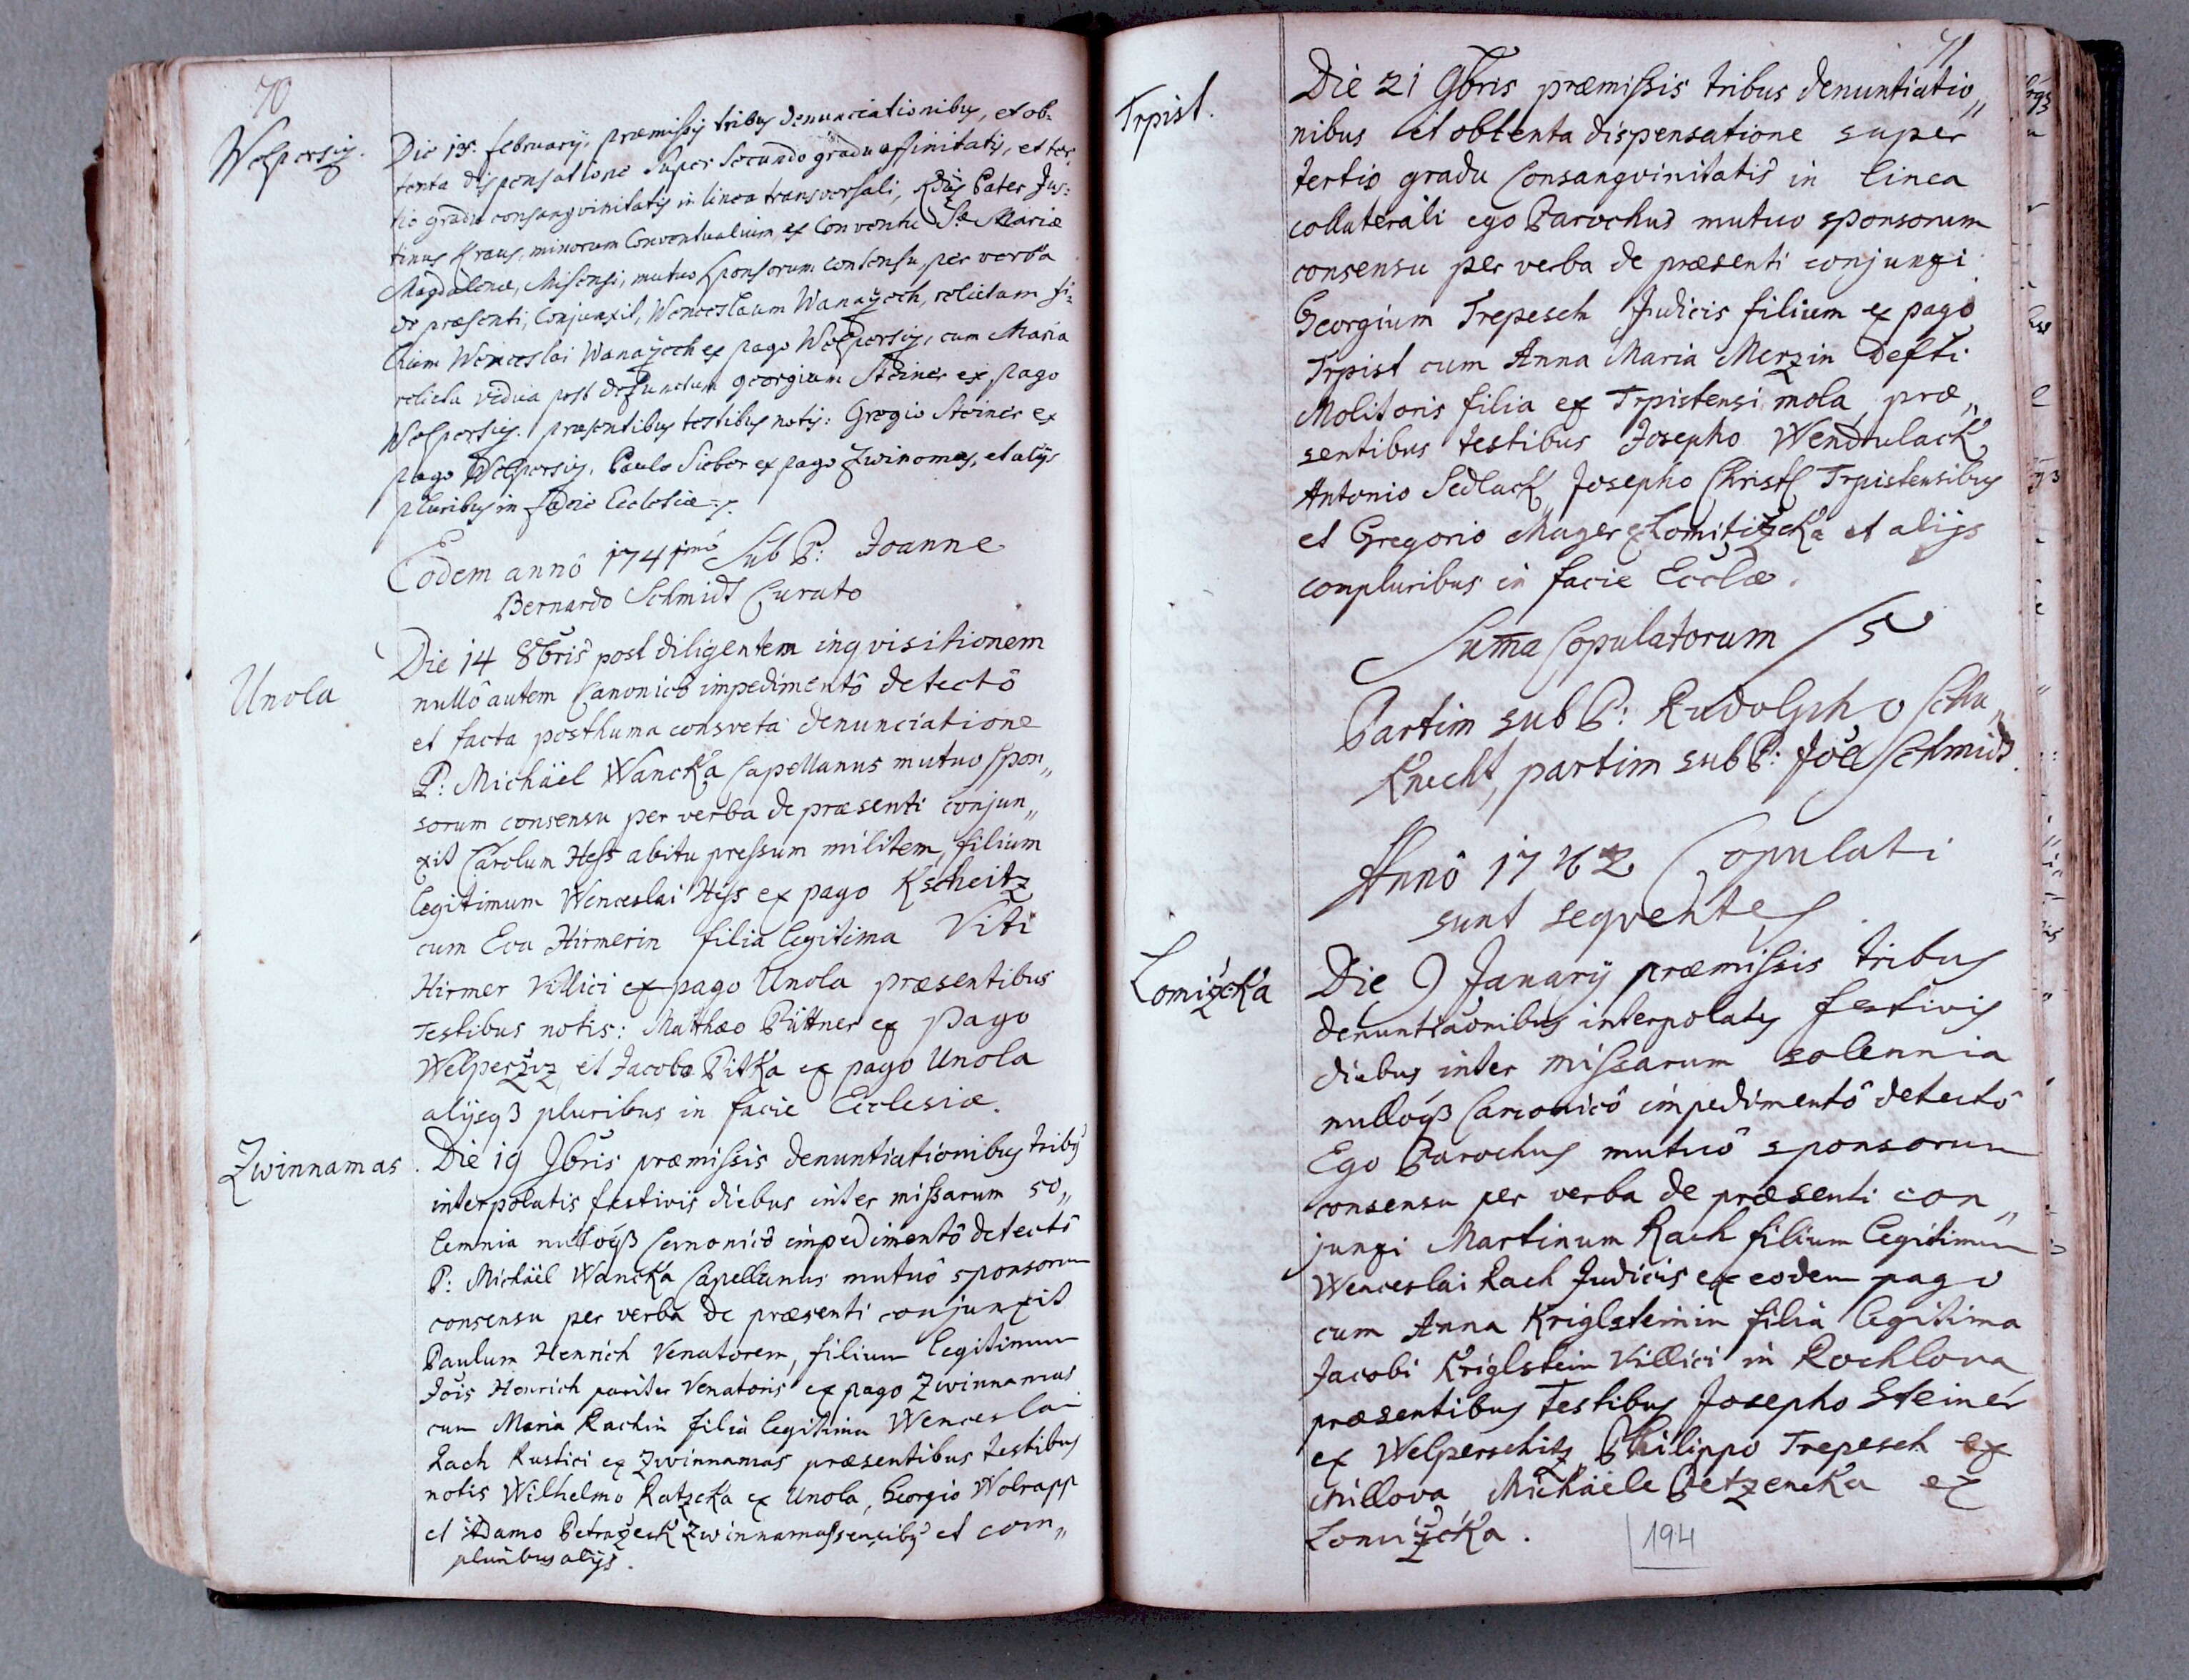 70
Welpersiz.
Die 15. february, præmissis tribus denunciationibus, et ob-
tenta dispensatione super secundo gradu affinitatis, et ter-
tio gradu consangvinitatis in linea transversali, Rdus Pater Jus-
tinus Kraus, minorum Conventualium, ex Conventu Stæ Mariæ
Magdalenæ, Misensi, mutuo sponsorum consensu, per verba
de præsenti, Conjunxit, Wenceslaum Wanayech, relictum fi-
lium Wenceslai Wanayech ex pago Welpersiz, cum Maria
relicta vidua post defunctum georgium Steiner ex pago
Welpersiz. præsentibus testibus notis: Gregio Steiner ex
pago Welpersiz, Paulo Sieber ex pago Zwinomas, et alijs
pluribus in facie Ecclesiæ.
Eodem annô 1741imô Sub P: Joanne
Bernardo Schmidt Curato
Unola
Die 14 8bris post diligentem inqvisitionem
nullô autem Canonicô impedimentô detectô
et facta posthuma consveta denunciatione
P: Michäel Wancka Capellanus mutuo spon„
sorum consensu per verba de præsenti conjun„
xit Carolum Hess abitu pressum militem, filium
legitimum Wenceslai Hess ex pago Kscheitz
cum Eva Hirmerin filia legitima Viti
Hirmer Villici ex pago Unola præsentibus
Testibus notis: Matthæo Püttner ex pago
Welperžiz et Jacobo Pitka ex pago Unola
alijsq3 pluribus in facie Ecclesiæ.
Zwinnamas.
Die 19 9bris præmissis denuntiationibus tribus
interpolatis festivis diebus inter missarum so„
lemnia nulloq3 Canonicô impedimentô detectô
P: Michäel Wancka Capellanus mutuô sponsorum
consensu per verba de præsenti conjunxit
Paulum Henrich Venatorem, filium legitimum
Jois Henrich pariter Venatoris ex pago Zwinnamas
cum Maria Rachin filia legitima Wenceslai
Rach Rustici ex Zwinnamas præsentibus testibus
notis Wilhelmo Ratzcka ex Unola, Georgio Wolrapp
et Adamo Petražeck Zwinnamassensibus et com„
pluribus alijs.
71
Trpist.
Die 21 9bris præmissis tribus denuntiatio„
nibus et obtenta dispensatione super
tertio gradu Consangvinitatis in linea
collaterali ego Parochus mutuo sponsorum
consensu per verba de præsenti conjunxi
Georgium Trepesch Judicis filium ex pago
Trpist cum Anna Maria Merzin defti
Molitoris filia ex Trpistensi mola, præ„
sentibus testibus Josepho Wendulack
Antonio Sedlack Josepho Christl Trpistensibus
et Gregorio Mager ex Lomitizcka et alijs
conpluribus in facie Ecclæ.
Suma Copulatorum / 5
Partim sub P: Rudolpho Schu„
Knecht, partim sub P: Joe Schmidt.
Annô 1742 Copulati
sunt seqventes
Lomižcka
Die 9 Janarij præmissis tribus
denuntiaonibus interpolatis festivis
diebus inter missarum solennia
nulloq3 Canonicô impedimentô detectô
Ego Parochus mutuô sponsorum
consensu per verba de præsenti con„
junxi Martinum Rach filium legitimum
Wenceslai Rach Judicis ex eodem pago
cum Anna Kriglsteinin filia legitima
Jacobi Kriglstein Villici in Rochlova
præsentibus Testibus Josepho Steiner
ex Welperschitz Philippo Trepesch ex
Millova Michäele Petzencka ex
Lomižcka.
194